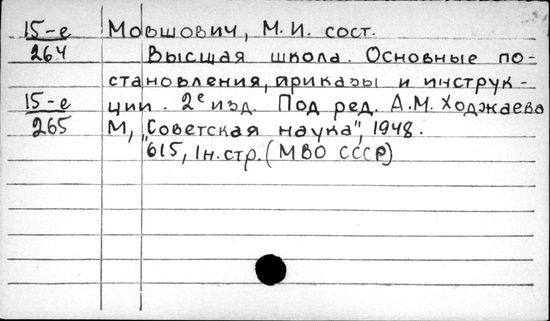 15-е Мовшович, М.И. сост.
264 Высшая школа. Основные по-
становления, приказы и инструк-
15-е ции. 2е изд. Под ред. А.М. Ходжаева
265 М, "Советская наука", 1948.
615, 1н.стр. (МВО СССР)